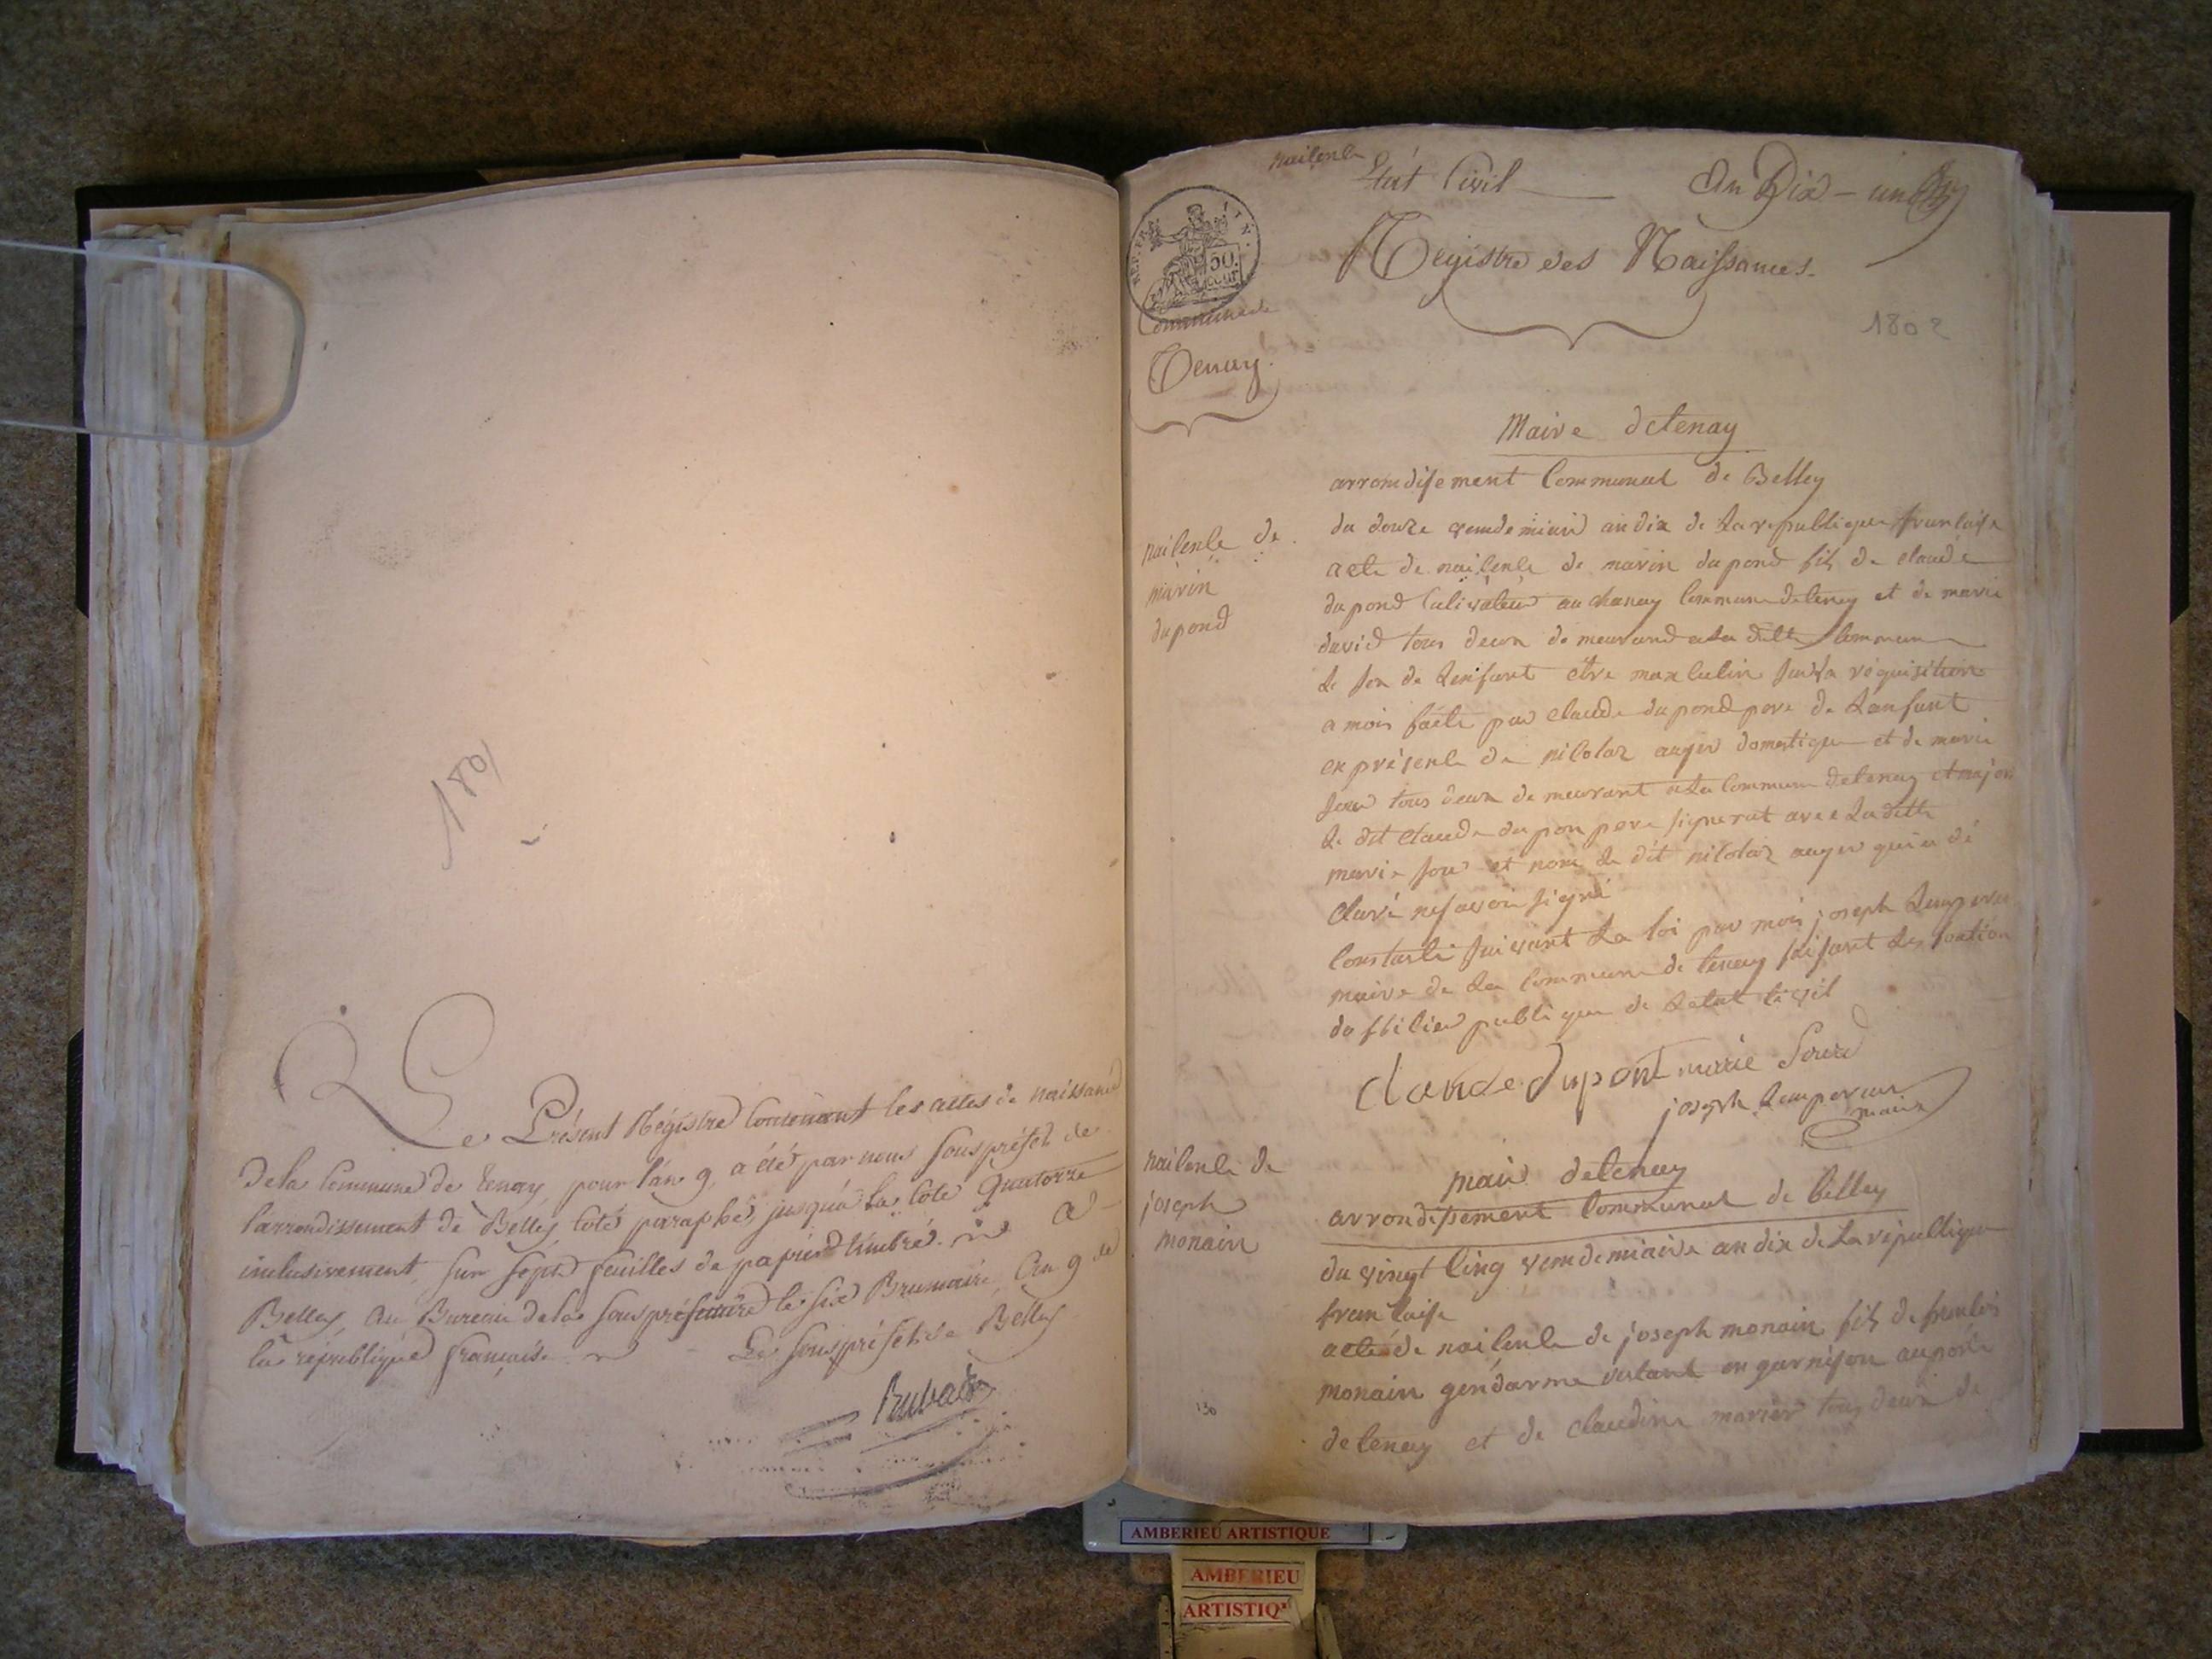 1801
Le Présent Régistre Contenant les actes de naissance
de la Commune de Tenay, pour l'an 9, a été par nous Sous préfet de
l'arrondissement de Belley, coté paraphé, jusqu'à la cote Quatorze
inclusivement, sur sept feuilles de papier timbré. a
Belley, au Bureau de la Souspréfecture le six Brumaire, an 9 de
la république française. Le Souspréfet de Belley
naisenle
Etat Civil — An Dix — un
REP. FRA.
50.
Registre des Naissances.
Commune de
Tenay.
1802
Maire detenay
arrondisement Communal de Belley
du douze vendemiaire an dix de La republique franlaise
naisenle de
marin
dupond
acte de naisenle de marin dupond fils de claude
dupond Culivateur au chanay Commune detenay et de marie
david tous deux demeurand ala ditte Commune
Le sex de Lenfant etre maxlulin sur La réquisition
a mois faite par Claude dupond pere de Lanfant
en présenle de nilolaz auger domestique et de marie
tous deux demeurant ala Commune detenay et majors
Le dit Claude dupon pere signerat avec La ditte
marie et non Le dit nilolaz auger qui a dé
claré ne savoir signé
Constaté suivant La loi par mois joseph Lempereur
maire de La Commune de tenay faisant Les fontion
dofficier publique de Letat Civil
Claude dupont marie
joseph Lempereur
maire
naisenle de
joseph
monain
maire detenay
arrondisement Communal de billey
du vingt Cinq vendemiaire an dix de La république
franlaise
acte de naisenle de joseph monain fils de franlois
monain gendarme en garnison au poste
detenay et de Claudine tous deux de
130
AMBERIEU ARTISTIQUE
AMBERIEU
ARTISTIQ